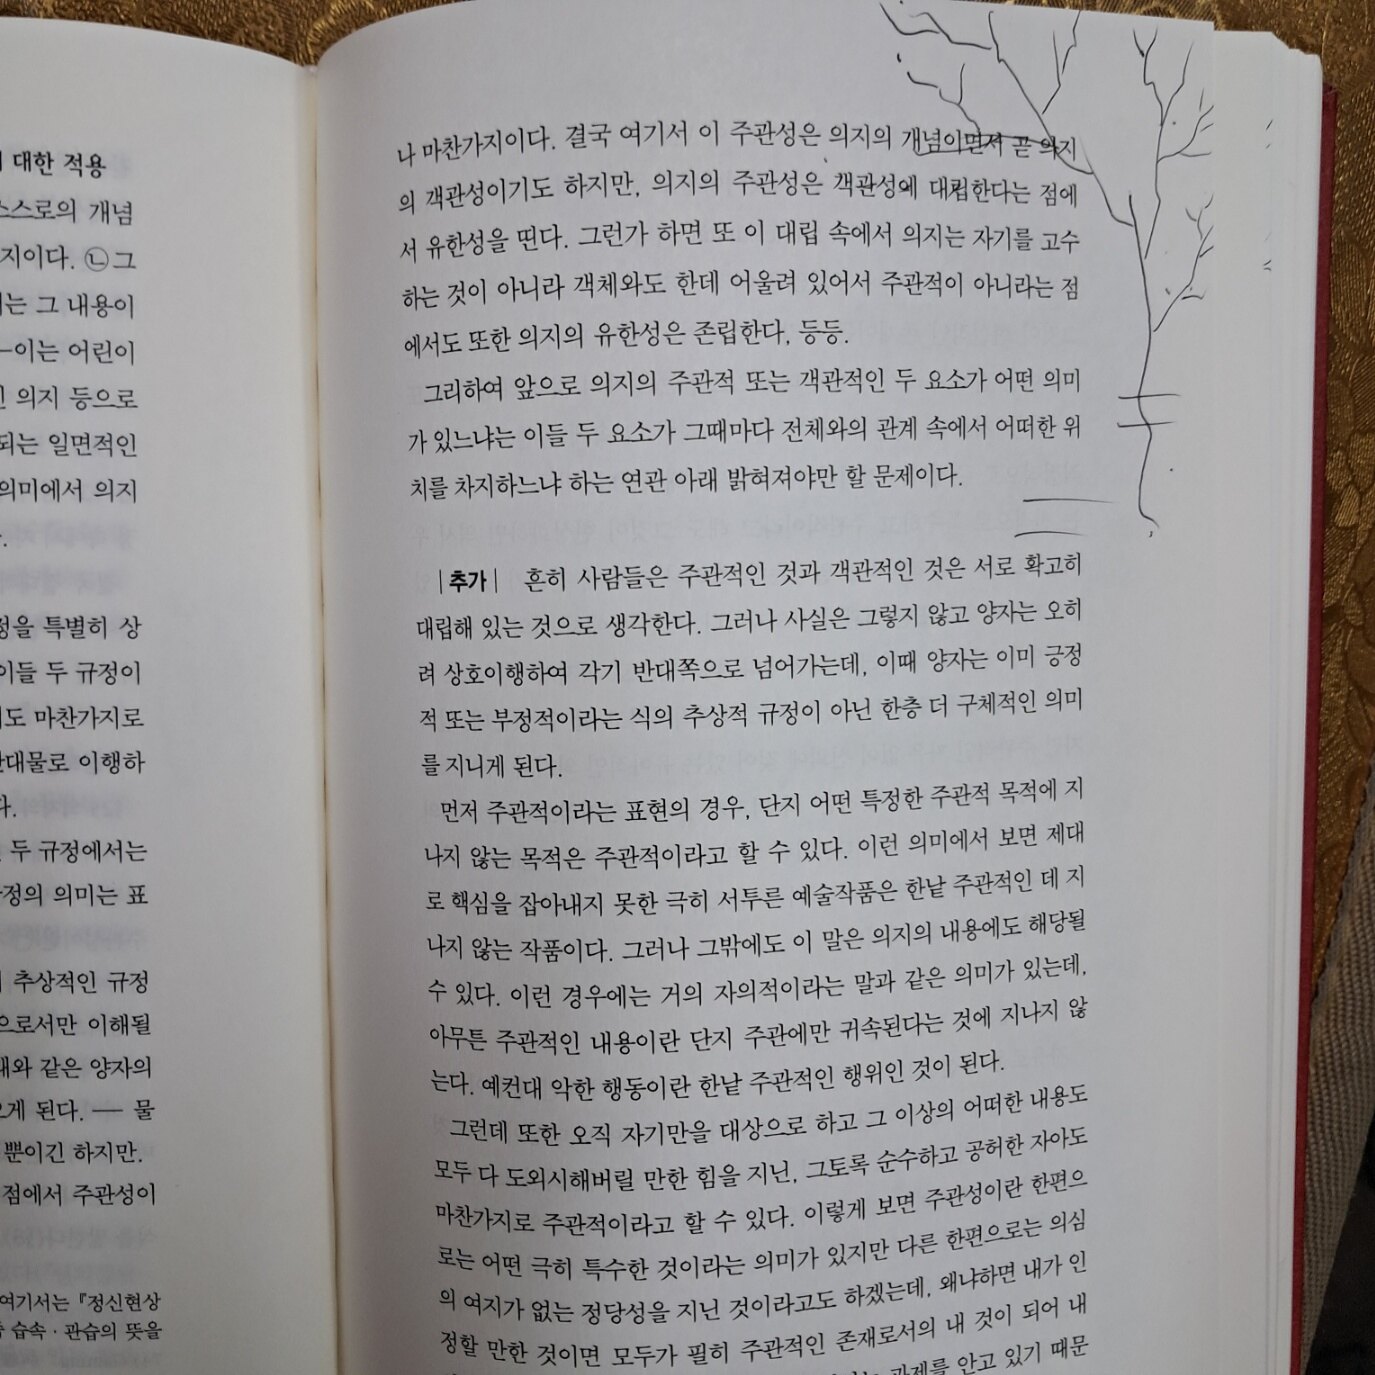 대한 적용
스스로의 개념
지이다. ㉡그
는 그 내용이
—이는 어린이
의지 등으로
되는 일면적인
의미에서 의지
정을 특별히 상
이들 두 규정이
도 마찬가지로
반대물로 이행하
다.
두 규정에서는
정의 의미는 표
추상적인 규정
으로서만 이해될
같은 양자의
게 된다. — 물
뿐이긴 하지만.
점에서 주관성이
여기서는 『정신현상
습속·관습의 뜻을
나 마찬가지이다. 결국 여기서 이 주관성은 의지의 개념이면서 곧 의지
의 객관성이기도 하지만, 의지의 주관성은 객관성에 대립한다는 점에
서 유한성을 띤다. 그런가 하면 또 이 대립 속에서 의지는 자기를 고수
하는 것이 아니라 객체와도 한데 어울려 있어서 주관적이 아니라는 점
에서도 또한 의지의 유한성은 존립한다, 등등.
그리하여 앞으로 의지의 주관적 또는 객관적인 두 요소가 어떤 의미
가 있느냐는 이들 두 요소가 그때마다 전체와의 관계 속에서 어떠한 위
치를 차지하느냐 하는 연관 아래 밝혀져야만 할 문제이다.
|추가| 흔히 사람들은 주관적인 것과 객관적인 것은 서로 확고히
대립해 있는 것으로 생각한다. 그러나 사실은 그렇지 않고 양자는 오히
려 상호이행하여 각기 반대쪽으로 넘어가는데, 이때 양자는 이미 긍정
적 또는 부정적이라는 식의 추상적 규정이 아닌 한층 더 구체적인 의미
를 지니게 된다.
먼저 주관적이라는 표현의 경우, 단지 어떤 특정한 주관적 목적에 지
나지 않는 목적은 주관적이라고 할 수 있다. 이런 의미에서 보면 제대
로 핵심을 잡아내지 못한 극히 서투른 예술작품은 한낱 주관적인 데 지
나지 않는 작품이다. 그러나 그밖에도 이 말은 의지의 내용에도 해당될
수 있다. 이런 경우에는 거의 자의적이라는 말과 같은 의미가 있는데,
아무튼 주관적인 내용이란 단지 주관에만 귀속된다는 것에 지나지 않
는다. 예컨대 악한 행동이란 한낱 주관적인 행위인 것이 된다.
그런데 또한 오직 자기만을 대상으로 하고 그 이상의 어떠한 내용도
모두 다 도외시해버릴 만한 힘을 지닌, 그토록 순수하고 공허한 자아도
마찬가지로 주관적이라고 할 수 있다. 이렇게 보면 주관성이란 한편으
로는 어떤 극히 특수한 것이라는 의미가 있지만 다른 한편으로는 의심
의 여지가 없는 정당성을 지닌 것이라고도 하겠는데, 왜냐하면 내가 인
정할 만한 것이면 모두가 필히 주관적인 존재로서의 내 것이 되어 내
과제를 안고 있기 때문